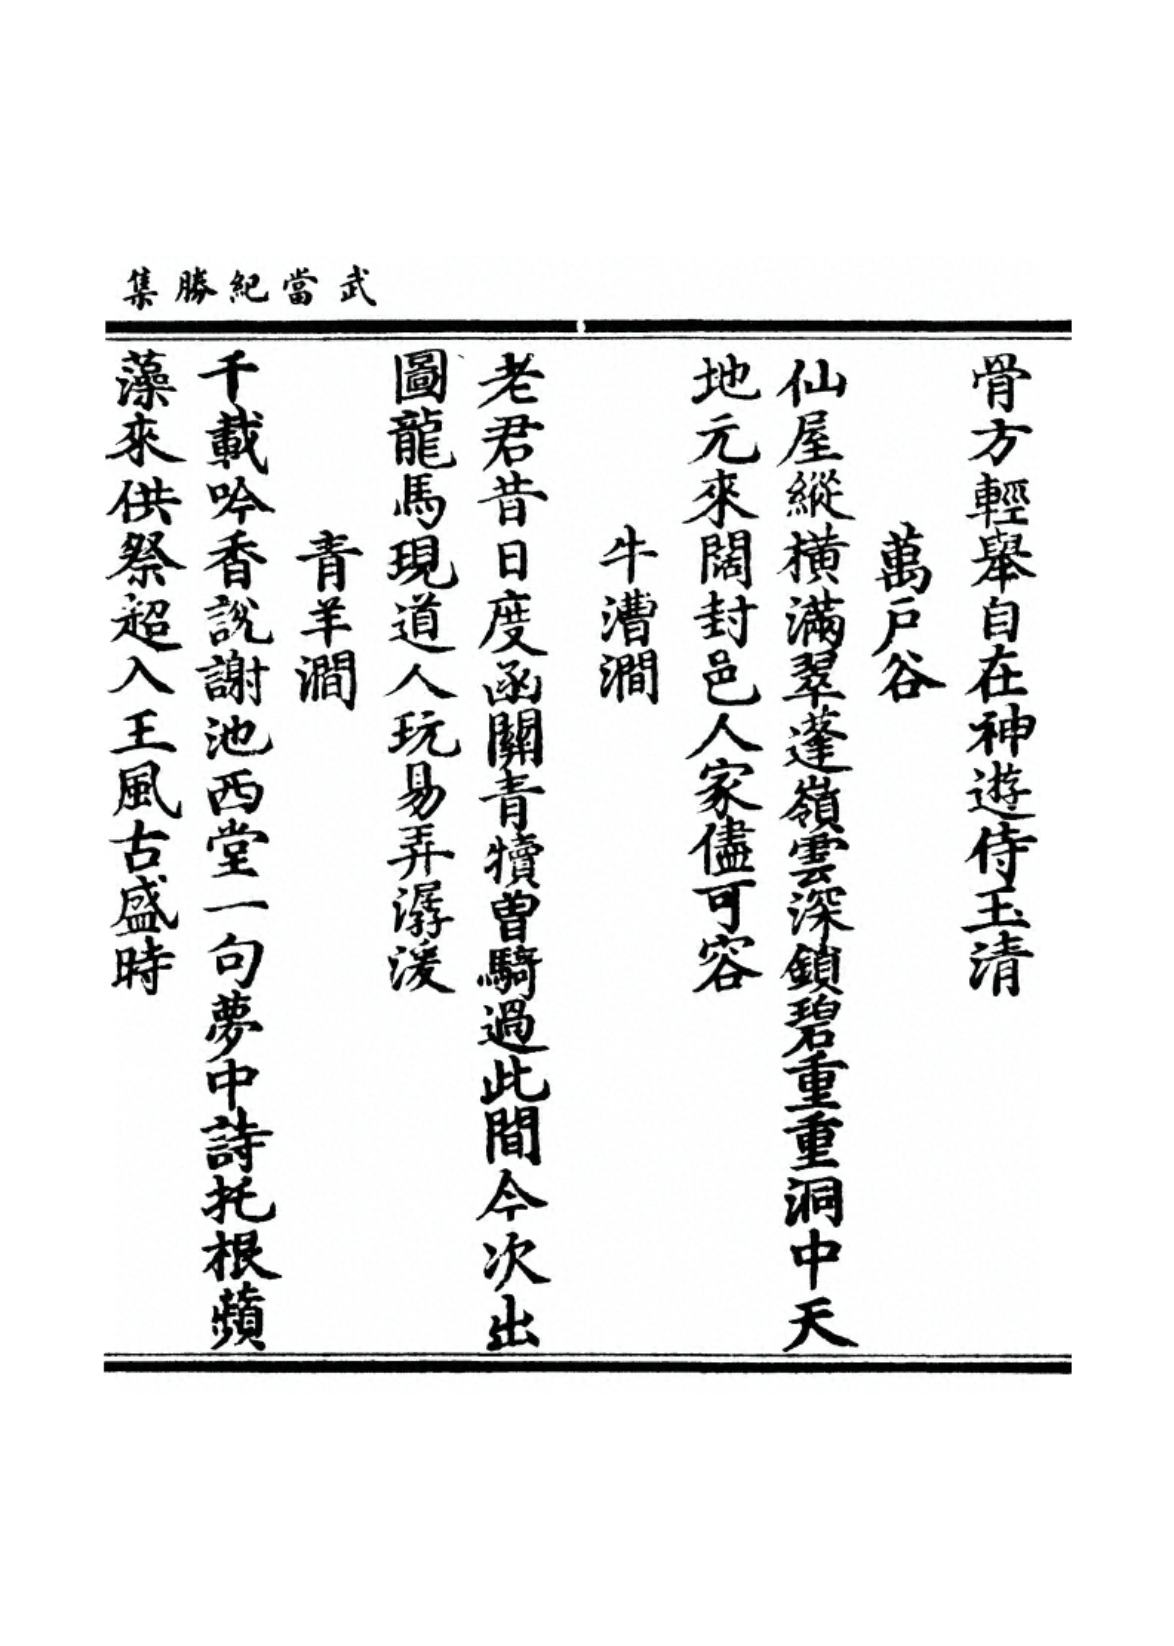 武當紀勝集
骨方輕舉自在神遊侍玉清
萬戶谷
仙屋縱橫滿翠蓬嶺雲深鎖碧重重洞中天
地元來闊封邑人家儘可容
牛漕澗
老君昔日度函關青犢曾騎過此間今次出
圖龍馬現道人玩易弄潺湲
青羊澗
千載吟香說謝池西堂一句夢中詩托根蘋
藻來供祭超入王風古盛時